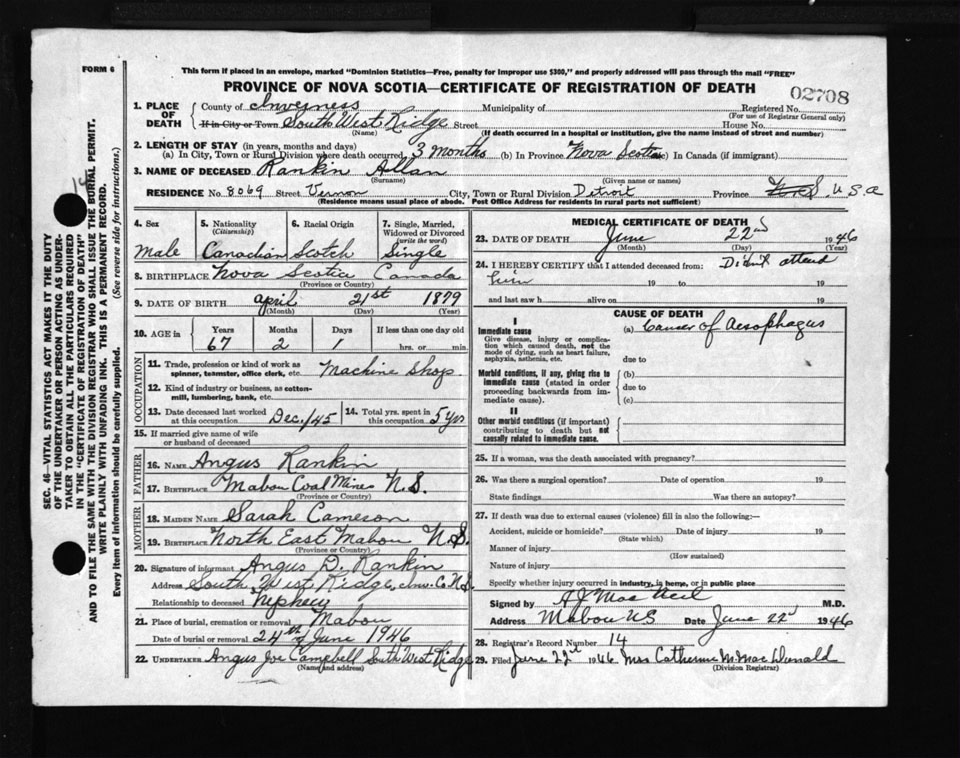 FORM 6
This form if placed in an envelope, marked "Dominion Statistics—Free, penalty for improper use $300," and properly addressed will pass through the mail "FREE"
PROVINCE OF NOVA SCOTIA—CERTIFICATE OF REGISTRATION OF DEATH
02708
1. PLACE OF DEATH
County of Inverness Municipality of Registered No.
(For use of Registrar General only)
If in City or Town South West Ridge Street House No.
(Name) (If death occurred in a hospital or institution, give the name instead of street and number)
2. LENGTH OF STAY (in years, months and days)
(a) In City, Town or Rural Division where death occurred 3 months (b) In Province Nova Scotia (c) In Canada (if immigrant)
3. NAME OF DECEASED Rankin Allan
(Surname) (Given name or names)
RESIDENCE No. 8069 Street Vernon City, Town or Rural Division Detroit Province U.S.A
(Residence means usual place of abode. Post Office Address for residents in rural parts not sufficient)
4. Sex
Male
5. Nationality
(Citizenship)
Canadian
6. Racial Origin
Scotch
7. Single, Married, Widowed or Divorced
(write the word)
Single
8. BIRTHPLACE Nova Scotia Canada
(Province or Country)
9. DATE OF BIRTH April 21st 1879
(Month) (Day) (Year)
10. AGE in Years Months Days If less than one day old
67 2 1 hrs. or min.
OCCUPATION
11. Trade, profession or kind of work as spinner, teamster, office clerk, etc. Machine Shop.
12. Kind of industry or business, as cotton-mill, lumbering, bank, etc.
13. Date deceased last worked at this occupation Dec/45
14. Total yrs. spent in this occupation 5 yrs
15. If married give name of wife or husband of deceased
FATHER
16. NAME Angus Rankin
17. BIRTHPLACE Mabou Coal Mines N.S.
(Province or Country)
MOTHER
18. MAIDEN NAME Sarah Cameron
19. BIRTHPLACE North East Mabou N.S.
(Province or Country)
20. Signature of informant Angus D. Rankin
Address South West Ridge, Inv. Co N.S.
Relationship to deceased Nephew
21. Place of burial, cremation or removal Mabou
Date of burial or removal 24th of June 1946
22. UNDERTAKER Angus Joe Campbell South West Ridge
(Name and address)
MEDICAL CERTIFICATE OF DEATH
23. DATE OF DEATH June 22nd 1946
(Month) (Day) (Year)
24. I HEREBY CERTIFY that I attended deceased from: Didn't attend
him 19 to 19
and last saw h alive on 19
CAUSE OF DEATH
I
Immediate cause
Give disease, injury or complication which caused death, not the mode of dying, such as heart failure, asphyxia, asthenia, etc.
(a) Cancer of Aesophagus
due to
Morbid conditions, if any, giving rise to immediate cause (stated in order proceeding backwards from immediate cause).
(b)
due to
(c)
II
Other morbid conditions (if important) contributing to death but not causally related to immediate cause.
25. If a woman, was the death associated with pregnancy?
26. Was there a surgical operation? Date of operation 19
State findings Was there an autopsy?
27. If death was due to external causes (violence) fill in also the following:—
Accident, suicide or homicide? Date of injury 19
(State which)
Manner of injury
(How sustained)
Nature of injury
Specify whether injury occurred in industry, in home, or in public place
Signed by A J MacNeil M.D.
Address Mabou NS Date June 22nd 1946
28. Registrar's Record Number 14
29. Filed June 22nd 1946 Mrs Catherine M. MacDonald
(Division Registrar)
SEC. 46—VITAL STATISTICS ACT MAKES IT THE DUTY
OF THE UNDERTAKER OR PERSON ACTING AS UNDERTAKER TO OBTAIN ALL THE PARTICULARS REQUIRED
IN THE "CERTIFICATE OF DEATH"
AND TO FILE THE SAME WITH THE DIVISION REGISTRAR WHO SHALL ISSUE THE BURIAL PERMIT.
WRITE PLAINLY WITH UNFADING INK. THIS IS A PERMANENT RECORD.
Every item of information should be carefully supplied. (See reverse side for instructions.)
14